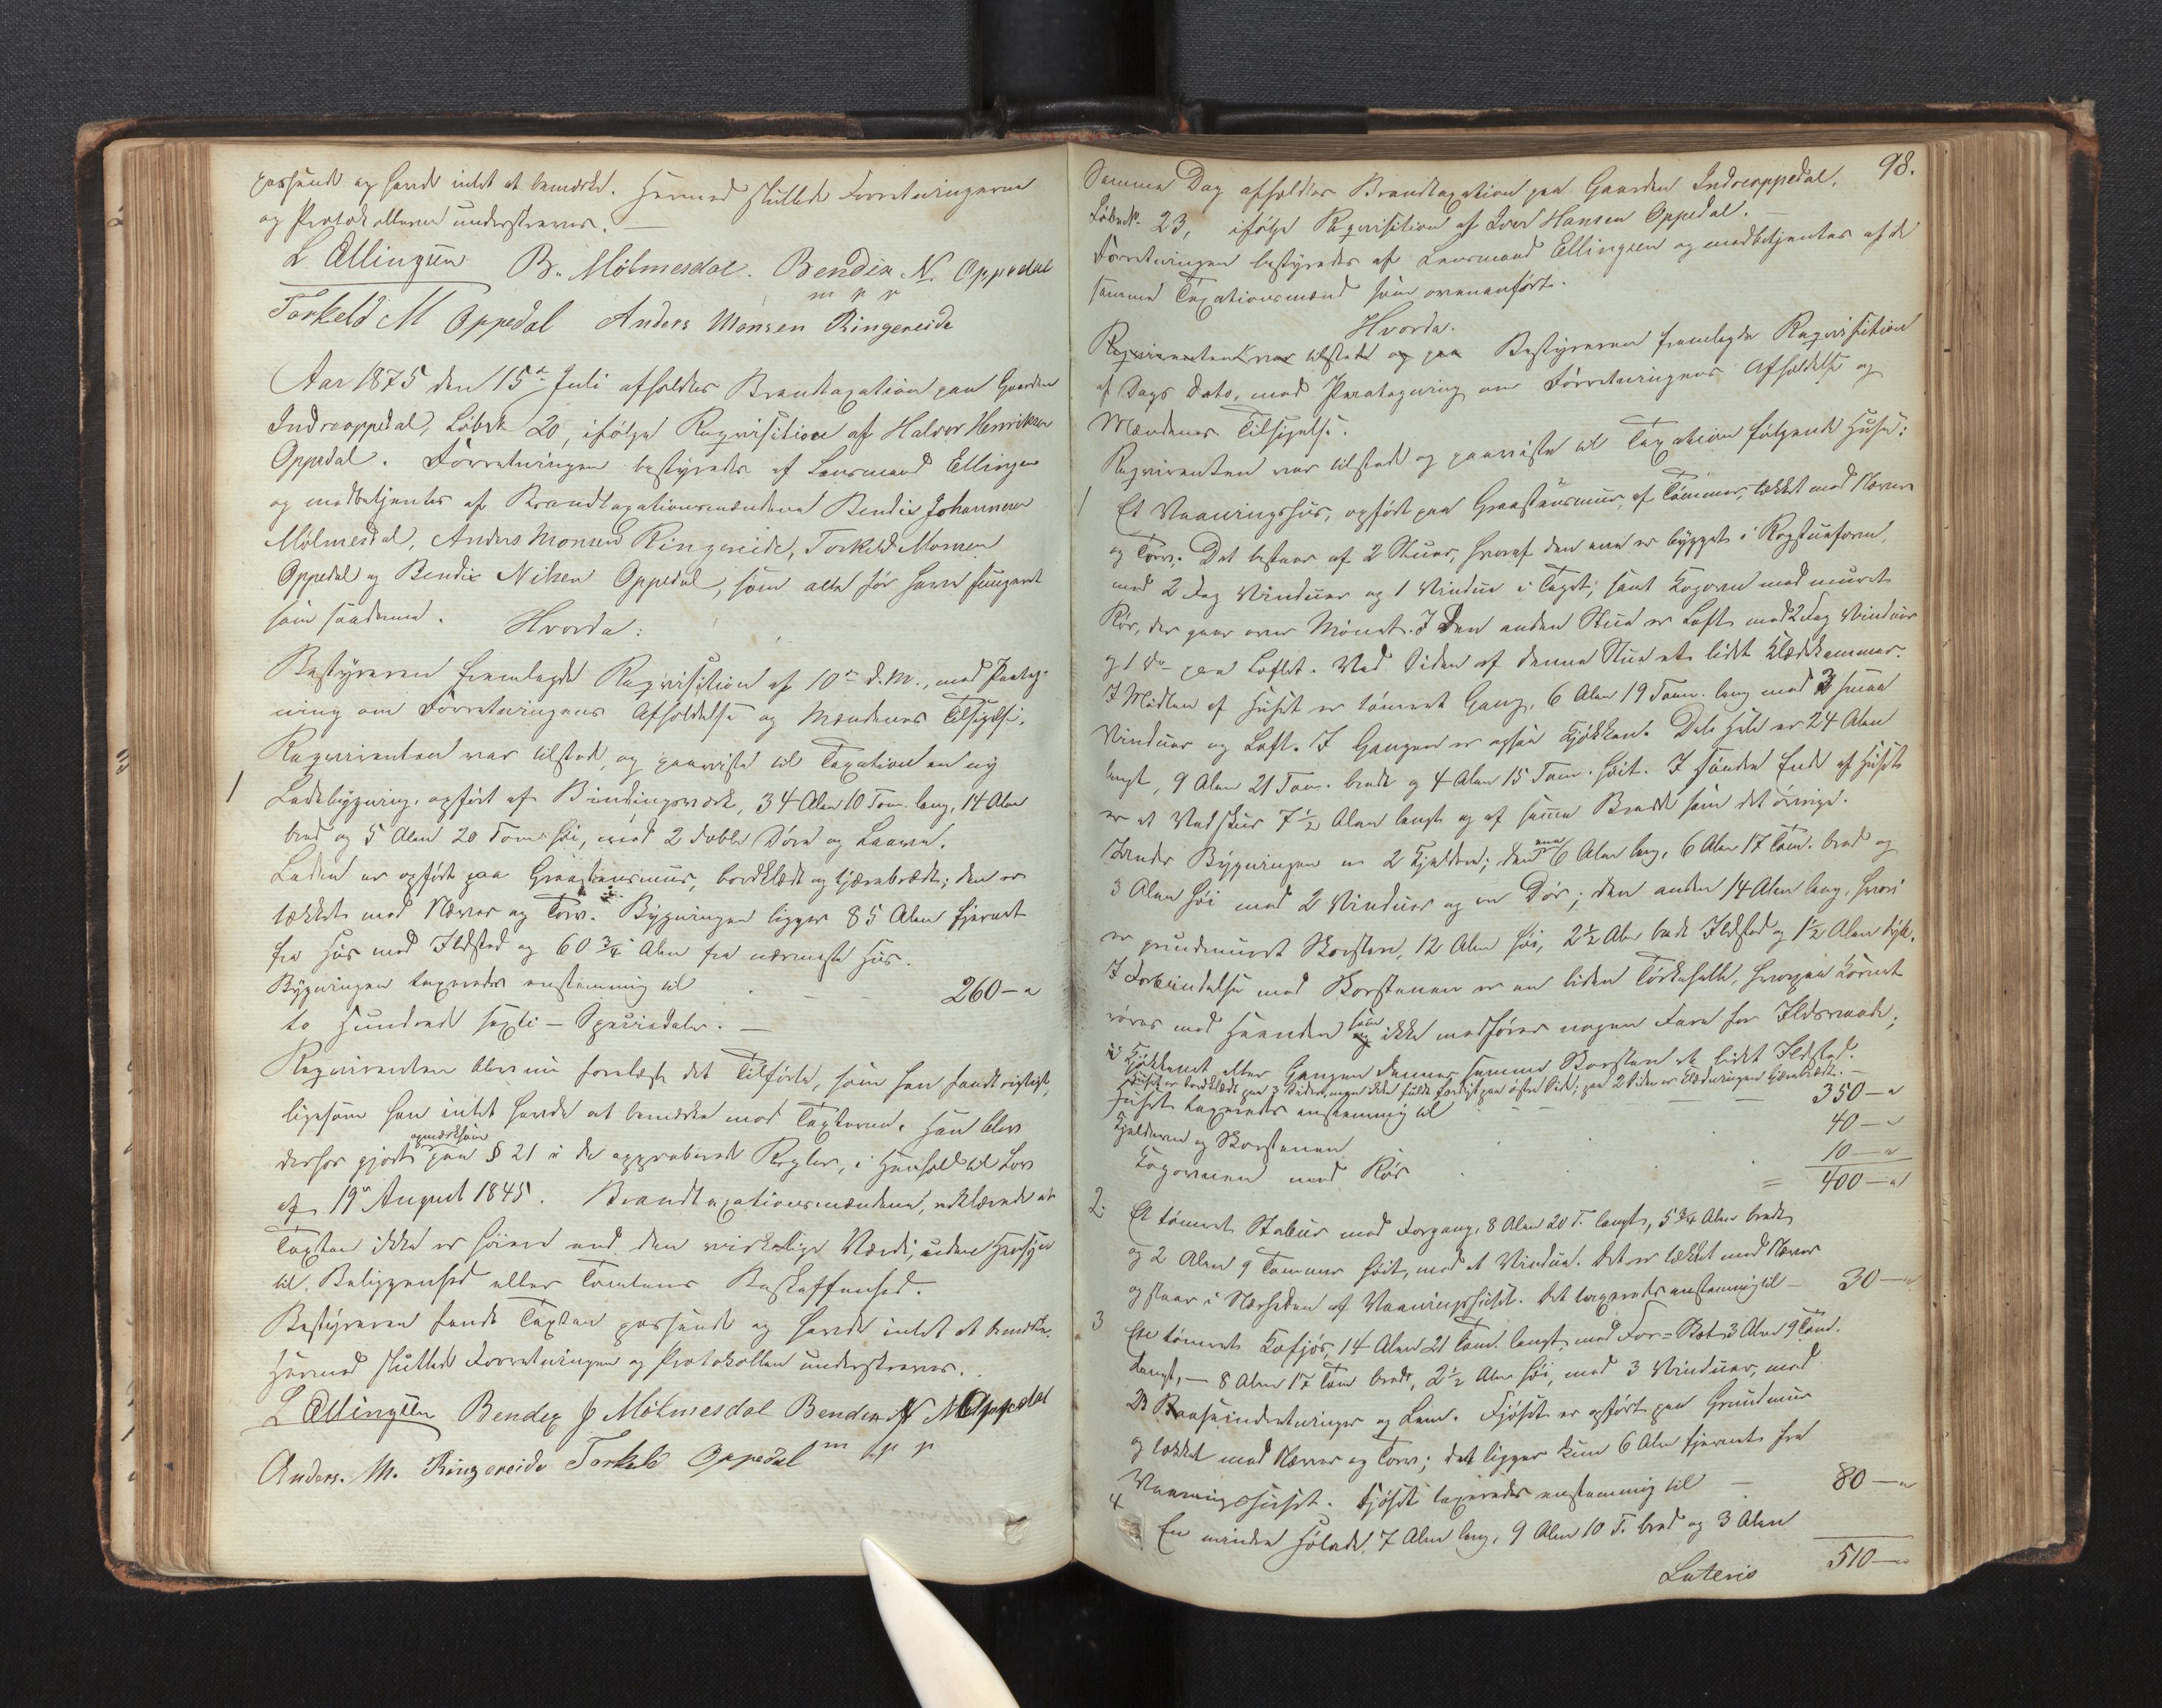 passende og havde intet at bemærke. Hermed sluttede Forretningerne
og Protokollerne underskreves. —
L Ellingsen B. Mölmesdal. Bendix N. Oppedal
m p p
Torkeld M Oppedal Anders Monsen Ringereide
Aar 1875 den 15de Juli afholdtes Brandtaxation paa Gaarden
Indreoppedal, Löbek 20, ifölge Requisition af Halvor Henriksen
Oppedal. Forretningen bestyredes af Lensmand Ellingsen
og medbetjentes af Brandtaxationsmændene Bendix Johannesen
Mölmesdal, Anders Monsen Ringereide, Torkeld Monsen
Oppedal og Bendix Nilsen Oppedal, som alle før have fungeret
som saadanne. Hvorda:
Bestyreren fremlagde Requisition af 10de d. M., med Paateg-
ning om Forretningens Afholdelse og Mændenes Tilsigelse.
Requirenten var tilstede, og paaviste til Taxation en ny
1 Ladebygning, opført af Bindingsværk, 34 Alen 10 Tom. lang, 14 Alen
bred og 5 Alen 20 Tom. høi, med 2 doble Döre og Laaver.
Laden er opført paa Graastensmur, bordklædt og tjærebrædt; den er
tækket med Næver og Torv. Bygningen ligger 85 Alen fjernet
fra Hus med Ildsted og 60 3/4 Alen fra nærmeste Hus.
Bygningen taxeredes enstemmig til . — — 260 — "
to Hundrede sexti — Speciedaler. —
Requirenten blev nu forelæst det Tilförte, som han fandt rigtigt,
ligesom han intet havde at bemærke mod Taxterne. Han blev
derhos gjort opmærksom paa § 21 i de approberede Regler, i Henhold til Lov
af 19de August 1845. Brandtaxationsmændene, erklærede at
Taxten ikke er høiere end den virkelige Værdi, uden Hensyn
til Beliggenhed eller Tomtens Beskaffenhed.
Bestyreren fandt Taxten passende og havde intet at bemærke.
Hermed sluttede Forretningen og Protokollen underskreves.
L Ellingsen Bendex J Mölmesdal Bendix N Oppedal
Anders. M. Ringereide Torkeld Oppedal m p p
98.
Samme Dag afholdtes Brandtaxation paa Gaarden Indreoppedal,
Löbek. 23, ifölge Requisition af Iver Hansen Oppedal. —
Forretningen bestyredes af Lensmand Ellingsen og medbetjentes af de
samme Taxationsmænd som ovenanfört.
Hvorda.
Requirenten var tilstede og paa Bestyreren fremlagde Requisition
af Dags Dato, med Paategning om Forretningens Afholdelse og
Mændenes Tilsigelse.
Requirenten var tilstede og paaviste til Taxation følgende Huse:
1 Et Vaaningshus, opført paa Graastensmur, af Tömmer, tækket med Næver
og Torv. Det bestaar af 2 Stuer, hvoraf den ene er bygget i Rogstueform,
med 2 Fag Vinduer og 1 Vindue i Taget, samt Kogovn med muret
Rör, der gaar over Mönet. I Den anden Stue er Loft med 2 Fag Vinduer
og 1 do paa Loftet. Ved Siden af denne Stue et lidet Klædekammer.
I Midten af Huset er tömret Gang, 6 Alen 19 Tom. lang med 3 smaa
Vinduer og Loft. I Gangen er ogsaa Kjökken. Dette Hele er 24 Alen
langt, 9 Alen 21 Tom. bredt og 4 Alen 15 Tom. höit. I söndre Ende af Huset
er et Vedskur 7 1/2 Alen langt og af samme Bredde som det övrige.
Under Bygningen er 2 Kjeldere; den ene 6 Alen lang, 6 Alen 17 Tom. bred og
3 Alen höi med 2 Vinduer og en Dör; den anden 14 Alen lang, hvori
er grundmuret Skorsten, 12 Alen höi, 2 1/2 Alen bredt Ildsted og 1 1/2 Alen dybt.
I Forbindelse med Skorstenen er en liden Törkehelle, hvorpaa Kornet
röres med Hænder som ikke medförer nogen Fare for Ildsvaade;
i Kjökkenet eller Gangen danner samme Skorsten et lidet Ildsted.
Huset er bordklædt paa 3 Sider, men ikke fuldt færdigt paa østre Side; paa 2 Sider er Klædningen tjærebrædt. —
Huset taxeredes enstemmig til — — — 350 — "
Kjelderen og Skorstenen 40 — "
Kogovnen med Rör 10 — "
= 400 — "
2. Et tömret Stabur med Forgang, 8 Alen 20 T. langt, 5 3/4 Alen bredt
og 2 Alen 9 Tommer höit, med et Vindue. Det er tækket med Næver
og staar i Nærheden af Vaaningshuset. Det taxeredes enstemmig til — 30 — "
3 Ete tömret Kofjös, 14 Alen 21 Tom. langt, med For= 3 Alen 9 Tom.
langt, — 8 Alen 17 Tom bredt, 2 1/2 Alen höi, med 3 Vinduer, med
Baaseindretninger og Lem. Fjöset er opført paa Grundmur
og tækket med Næver og Torv; det ligger kun 6 Alen fjernet fra
Vaaningshuset. Fjöset taxeredes enstemmig til — 80 — "
4 En mindre Hölade, 7 Alen lang, 9 Alen 10 T. bred og 3 Alen
Lateris 510 — "